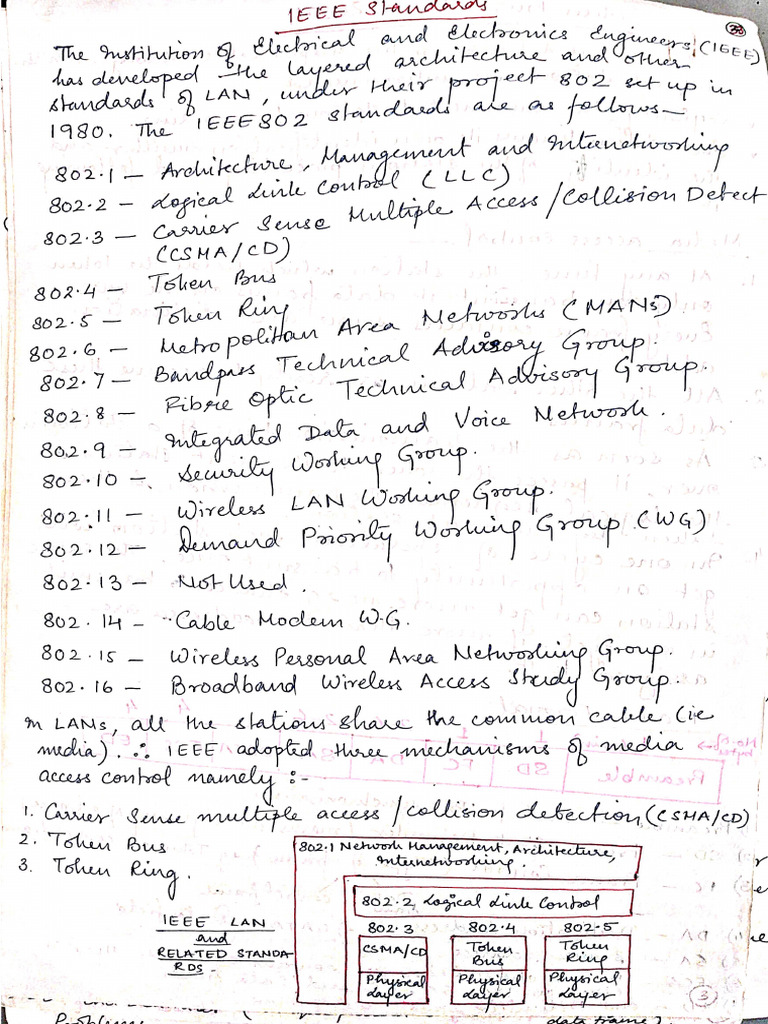 IEEE Standards
The Institution of Electrical and Electronics Engineers (IEEE)
has developed the layered architecture and other
standards of LAN, under their project 802 set up in
1980. The IEEE802 standards are as follows—
802.1 — Architecture, Management and Internetworking
802.2 — Logical Link Control (LLC)
802.3 — Carrier Sense Multiple Access / Collision Detect
(CSMA/CD)
802.4 — Token Bus
802.5 — Token Ring
802.6 — Metropolitan Area Networks (MANs)
802.7 — Bandpass Technical Advisory Group.
802.8 — Fibre Optic Technical Advisory Group.
802.9 — Integrated Data and Voice Network.
802.10 — Security Working Group.
802.11 — Wireless LAN Working Group.
802.12 — Demand Priority Working Group (WG)
802.13 — Not Used.
802.14 — Cable Modem W.G.
802.15 — Wireless Personal Area Networking Group.
802.16 — Broadband Wireless Access Study Group.
In LANs, all the stations share the common cable (ie
media). ∴ IEEE adopted three mechanisms of media
access control namely :-
1. Carrier Sense multiple access / collision detection (CSMA/CD)
2. Token Bus
3. Token Ring.
802.1 Network Management, Architecture,
Internetworking.
802.2 Logical Link Control
802.3 802.4 802.5
CSMA/CD Token Bus Token Ring
Physical Layer Physical Layer Physical Layer
IEEE LAN
and
RELATED STANDA-
RDS -
3
Problems data frame?